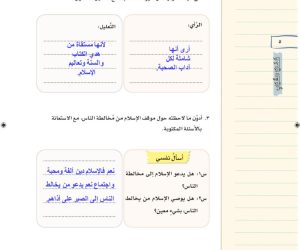 الرّأي:
أرى أنها
شاملة لكل
آداب الصحبة.
التّعليل:
لأنها مستقاة من
هدي الكتاب
والسنة وتعاليم
الإسلام.
٣. أدوّن ما لاحظته حول موقف الإسلام من مُخالطة الناس، مع الاستعانة
بالأسئلة المكتوبة.
أسألُ نفسي
س١: هل يدعو الإسلام إلى مخالطة
الناس؟
س٢: هل يوصي الإسلام من يخالط
الناس بشيء معين؟
نعم فالإسلام دين ألفة ومحبة
واجتماع نعم يدعو من يخالط
الناس إلى الصبر على أذاهم.